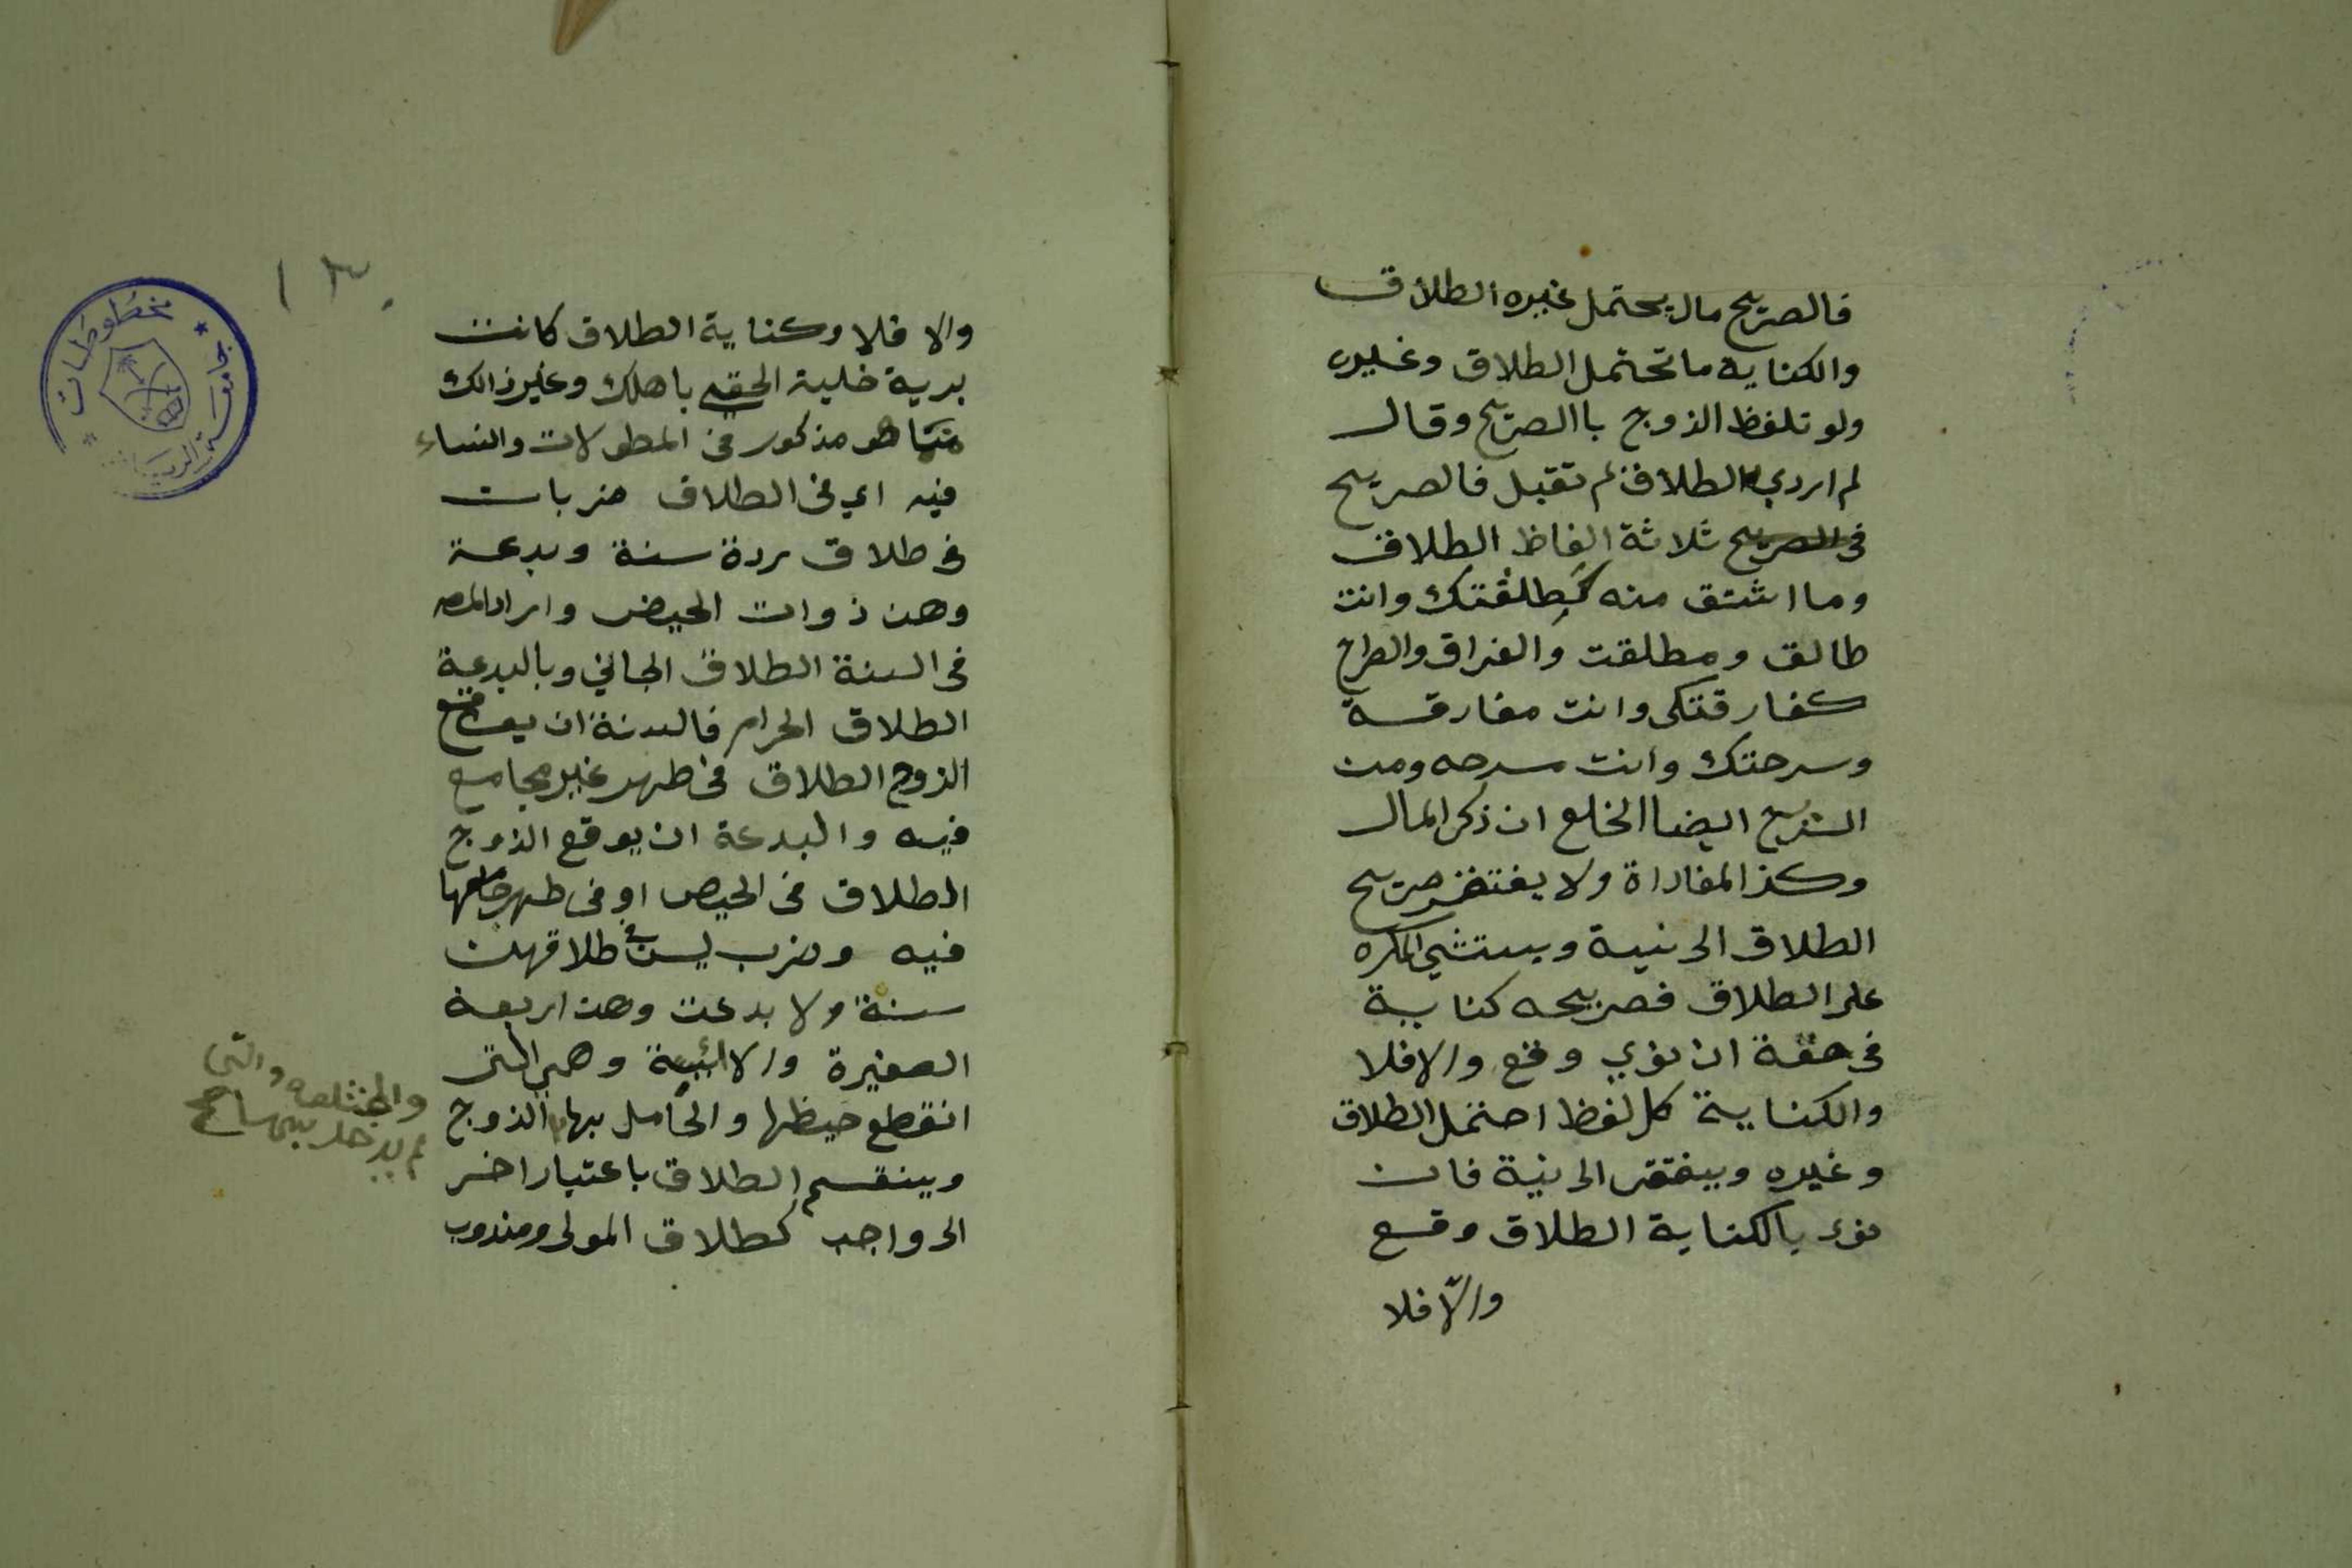 فالصريح مالايحتمل غيره الطلاق
والكناية ما تحتمل الطلاق وغيره
ولو تلفظ الزوج باالصريح وقال
لم اردبه الطلاق لم تقبل فالصريح
في الصريح ثلاثة الفاظ الطلاق
وما اشتق منه كطلقتك وانت
طالق ومطلقت والفراق والصراح
كفارقتكى وانت مفارقة
وسرحتك وانت سرحه ومن
الشريح ايضا الخلع ان ذكر المال
وكذ المفاداة ولا يفتقر صريح
الطلاق الى نية ويستثنى المكره
على الطلاق فصريحه كناية
في حقة ان نوي وقع والا فلا
والكناية كل لفظ احتمل الطلاق
وغيره ويفتقر الى نية فان
نوى بالكناية الطلاق وقع
والّا فلا
١٣٠
والا فلا وكناية الطلاق كانت
برية خلية الحقي باهلك وغير ذالك
مما هو مذكور في المطولات والنساء
فيه اي في الطلاق ضربات
في طلاق بردة سنة وبدعة
وهن ذوات الحيض واراد المصه
في السنة الطلاق الجائي وبالبدعة
الطلاق الحرام فالسنة ان يوقع
الزوج الطلاق في طهر غير مجامع
فيه والبدعة ان يوقع الزوج
الطلاق في الحيض او في طهر جامعها
فيه وضرب ليس في طلاقهن
سنة ولا بدعت وهن اربعة
الصغيرة والائيسة وهي التى
انقطع حيظها والحامل بها الزوج
وينقسم الطلاق باعتبار اخر
الى واجب كطلاق المولى ومندوب
والمختلعه والتي
لم يدخل بها صح
مخطوطات